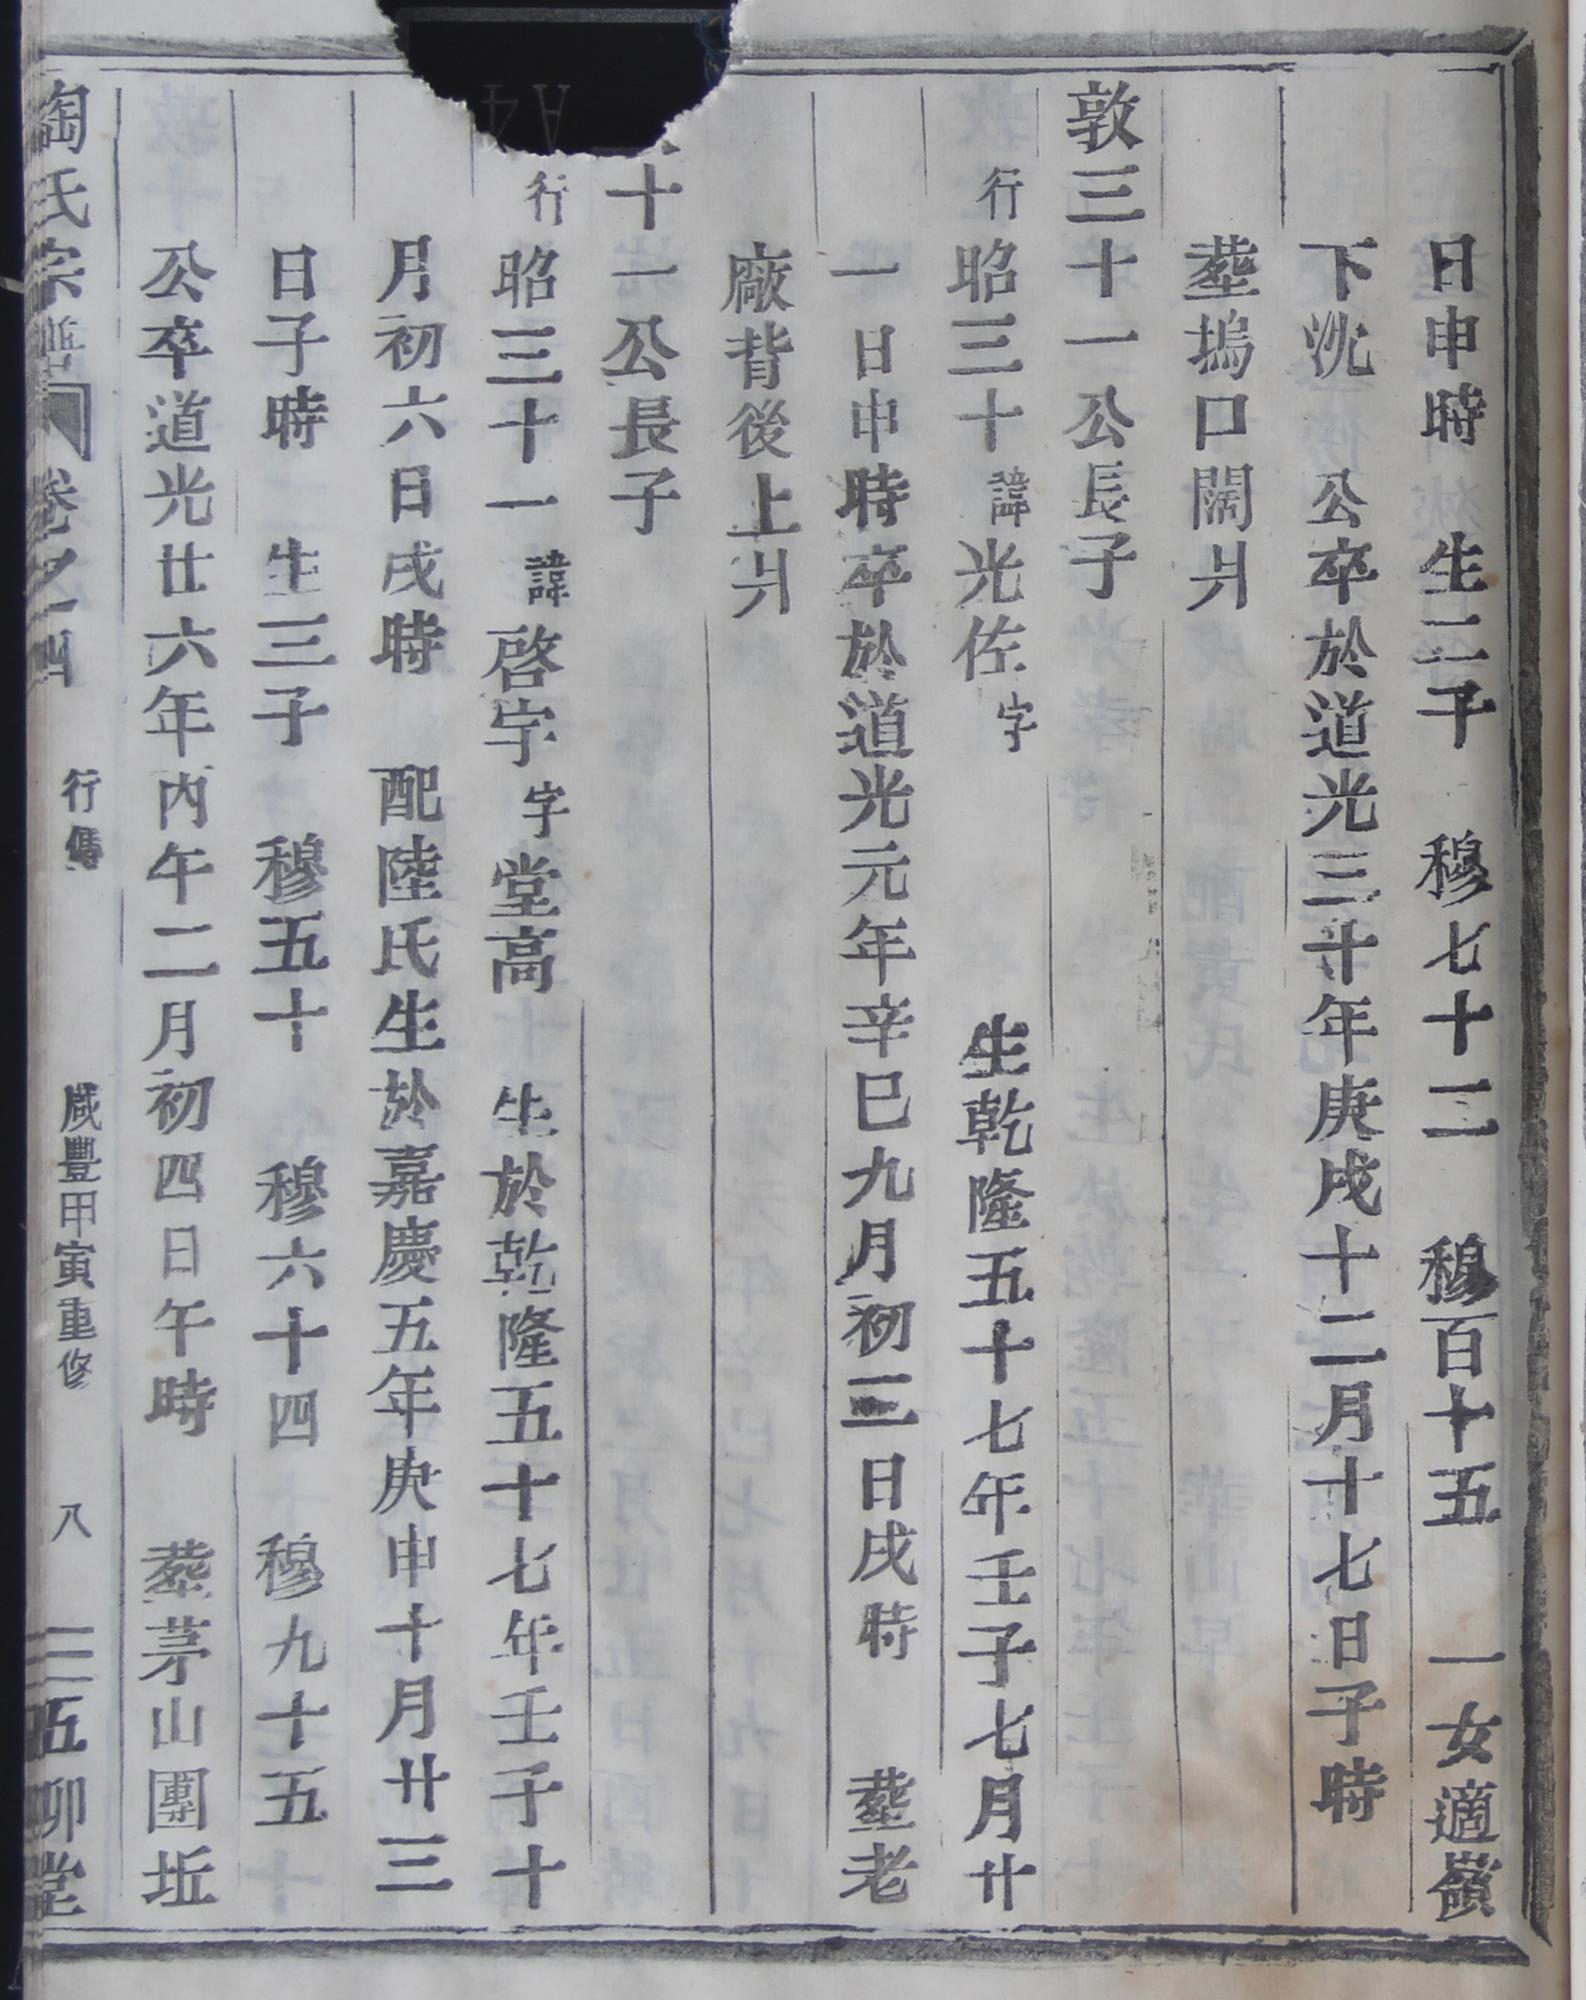 日申時 生二子 穆七十二 穆百十五 一女適嶺
下沈 公卒於道光三十年庚戌十二月十七日子時
塟塢口闊爿
敦三十一公長子
行昭三十諱光佐字 生乾隆五十七年壬子七月廿
一日申時卒於道光元年辛巳九月初三日戌時 塟老
廠背後上爿
十一公長子
行昭三十一諱啓宇字堂高 生於乾隆五十七年壬子十
月初六日戌時 配陸氏生於嘉慶五年庚申十月廿三
日子時 生三子 穆五十 穆六十四 穆九十五
公卒道光廿六年丙午二月初四日午時 塟茅山團坵
陶氏宗譜 卷之四 行傳 咸豐甲寅重修 八 五柳堂